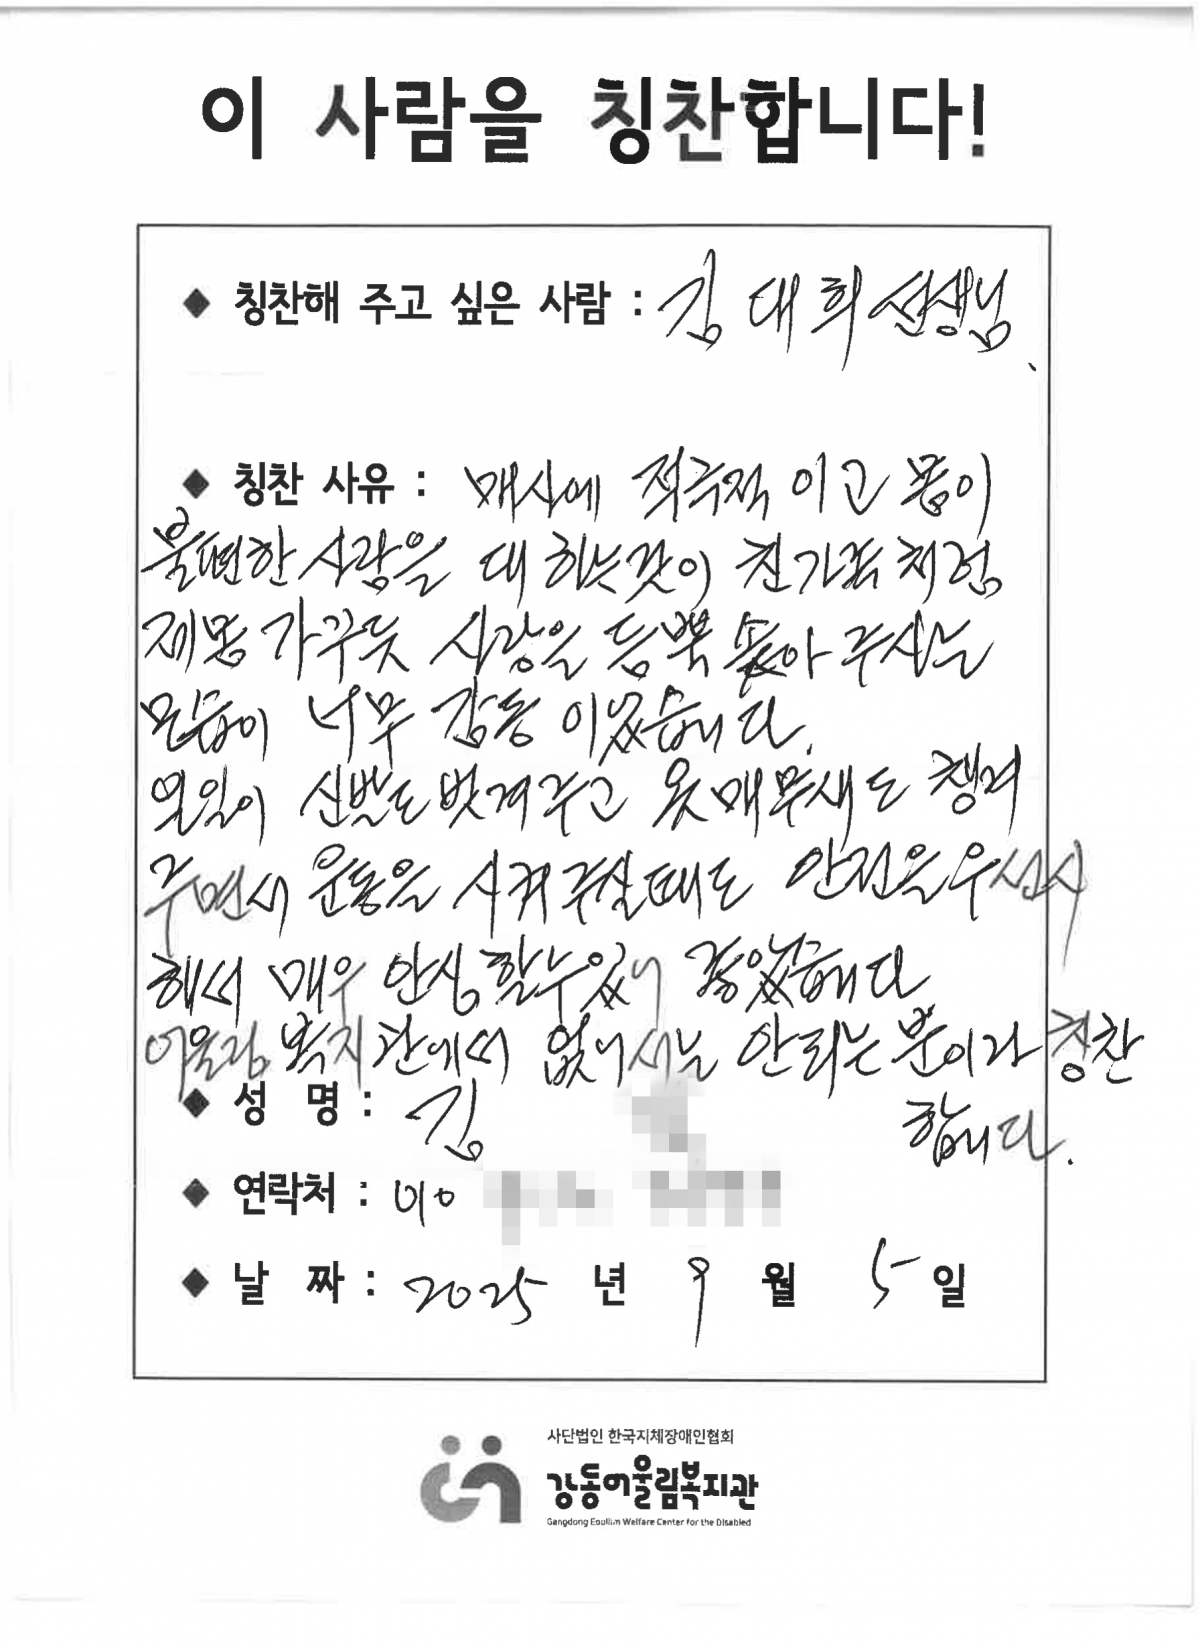 이 사람을 칭찬합니다!
◆ 칭찬해 주고 싶은 사람 : 김대희 선생님.
◆ 칭찬 사유 : 매사에 적극적 이고 몸이
불편한 사람을 대 하는것이 친가족 처럼
제몸 가꾸듯 사랑을 듬뿍 쏟아 주시는
모습이 너무 감동 이었습니다.
일일이 신발도 벗겨주고 옷매무새도 챙겨
주면서 운동을 시켜주실때도 안전을 우선시
해서 매우 안심할수있어 좋았습니다
어울림 복지관에서 없어서는 안되는 분이라 칭찬
합니다.
◆ 성 명 : 김
◆ 연락처 : 010
◆ 날 짜 : 2025 년 9 월 5 일
사단법인 한국지체장애인협회
강동어울림복지관
Gangdong Eoullim Welfare Center for the Disabled